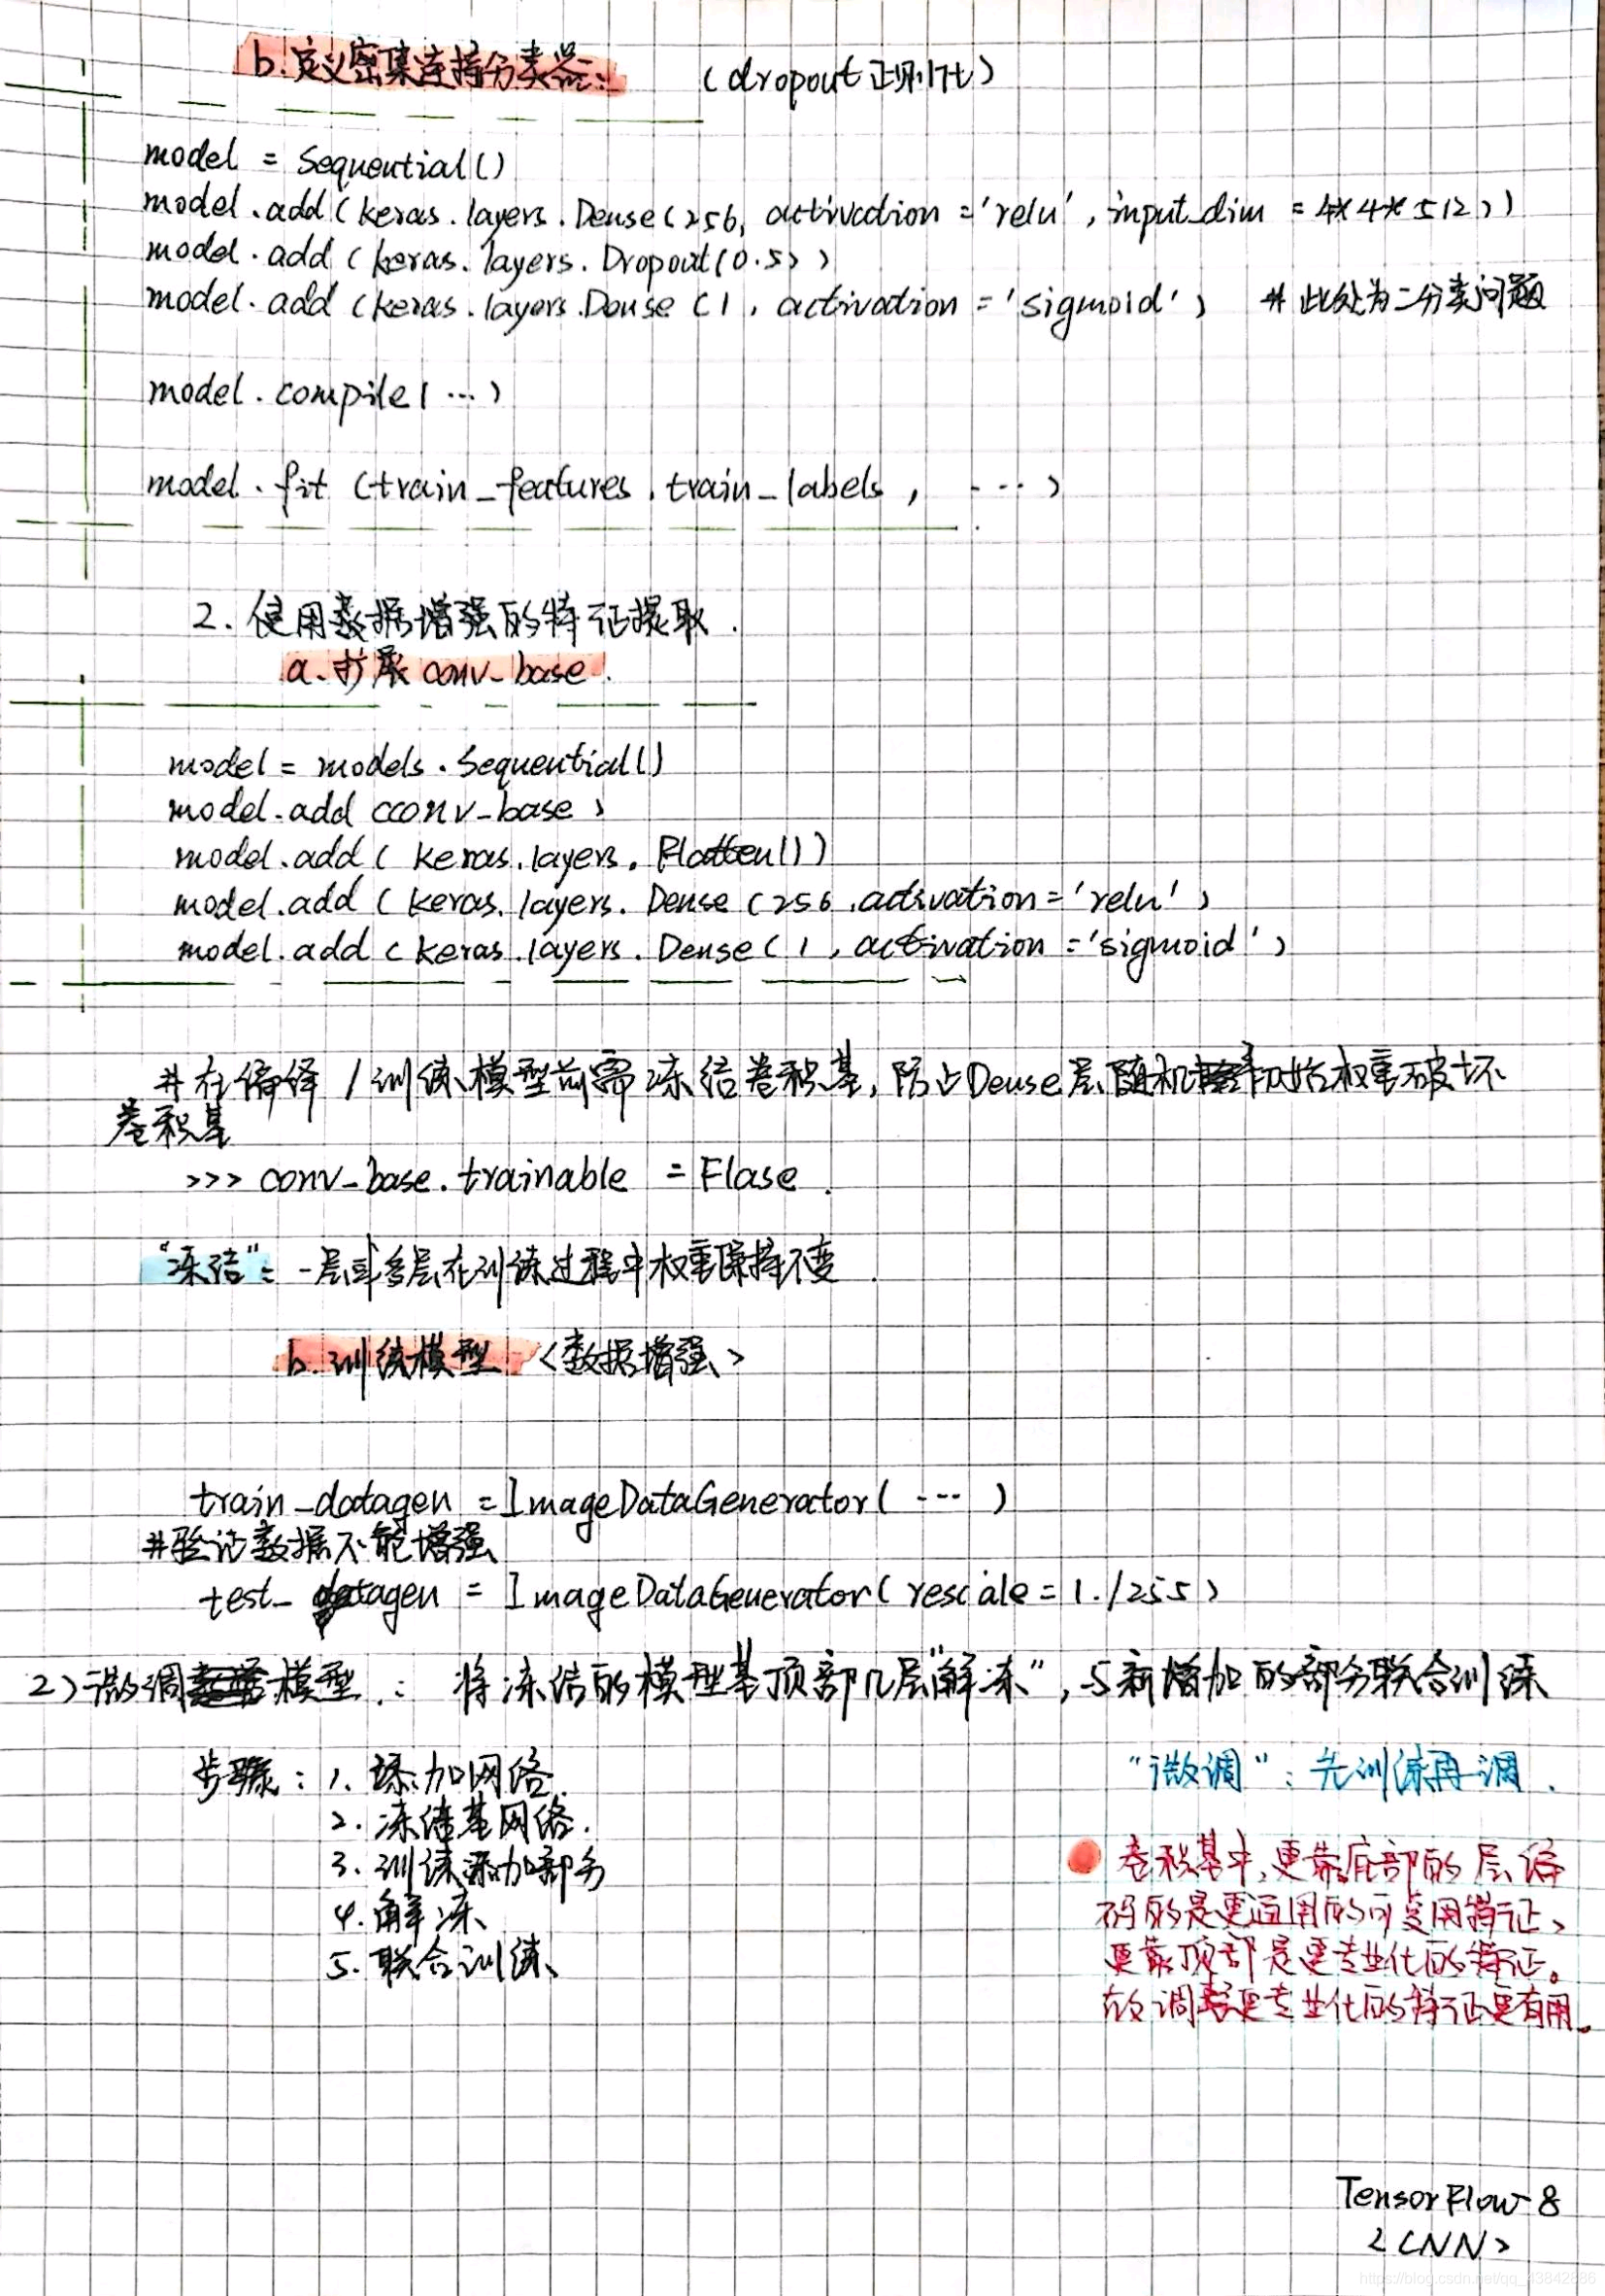 b.定义密集连接分类器: (dropout正则化)
model = Sequential()
model.add(keras.layers.Dense(256, activation='relu', input_dim = 4*4*512))
model.add(keras.layers.Dropout(0.5))
model.add(keras.layers.Dense(1, activation='sigmoid') #此处为二分类问题
model.compile(...)
model.fit (train_features, train_labels, ...)
2. 使用数据增强的特征提取.
a.扩展 conv_base.
model = models.Sequential()
model.add(conv_base)
model.add(keras.layers.Flatten())
model.add(keras.layers.Dense(256, activation='relu')
model.add(keras.layers.Dense(1, activation='sigmoid')
#在编译/训练模型前需冻结卷积基,防止Dense层随机初始权重破坏
卷积基
>>> conv_base.trainable = Flase.
"冻结": 一层或多层在训练过程中权重保持不变.
b.训练模型 <数据增强>
train_datagen = ImageDataGenerator(...)
#验证数据不能增强
test_datagen = ImageDataGenerator(rescale=1./255)
2)微调模型: 将冻结的模型基顶部几层"解冻",与新增加的部分联合训练
步骤: 1. 添加网络.
2. 冻结基网络.
3. 训练添加部分
4. 解冻
5. 联合训练
"微调": 先训练再调.
卷积基中,更靠底部的层编
码的是更通用的可复用特征、
更靠顶部是更专业化的特征。
故调更专业化的特征更有用。
TensorFlow-8
<CNN>
https://blog.csdn.net/qq_43842886